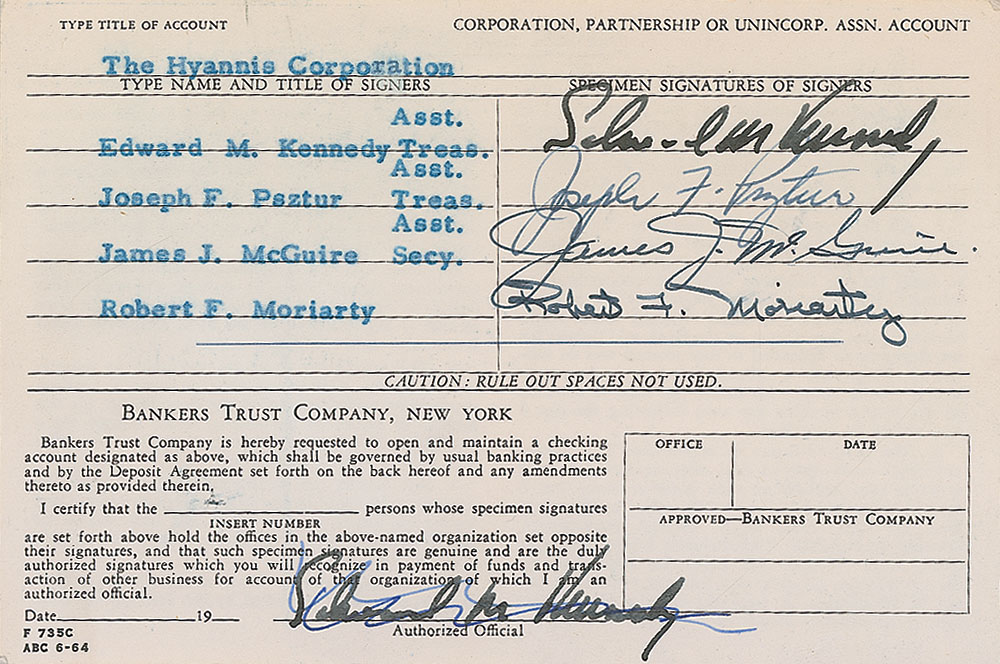 TYPE TITLE OF ACCOUNT CORPORATION, PARTNERSHIP OR UNINCORP. ASSN. ACCOUNT
The Hyannis Corporation
TYPE NAME AND TITLE OF SIGNERS SPECIMEN SIGNATURES OF SIGNERS
Asst.
Edward M. Kennedy Treas. Edward M Kennedy
Asst.
Joseph F. Psztur Treas. Joseph F. Psztur
Asst.
James J. McGuire Secy. James J. McGuire.
Robert F. Moriarty Robert F. Moriarty
CAUTION: RULE OUT SPACES NOT USED.
BANKERS TRUST COMPANY, NEW YORK
Bankers Trust Company is hereby requested to open and maintain a checking
account designated as above, which shall be governed by usual banking practices
and by the Deposit Agreement set forth on the back hereof and any amendments
thereto as provided therein.
I certify that the persons whose specimen signatures
INSERT NUMBER
are set forth above hold the offices in the above-named organization set opposite
their signatures, and that such specimen signatures are genuine and are the duly
authorized signatures which you will recognize in payment of funds and trans-
action of other business for account of that organization of which I am an
authorized official.
Edward M Kennedy
Date 19
Authorized Official
F 735C
ABC 6-64
OFFICE DATE
APPROVED—BANKERS TRUST COMPANY